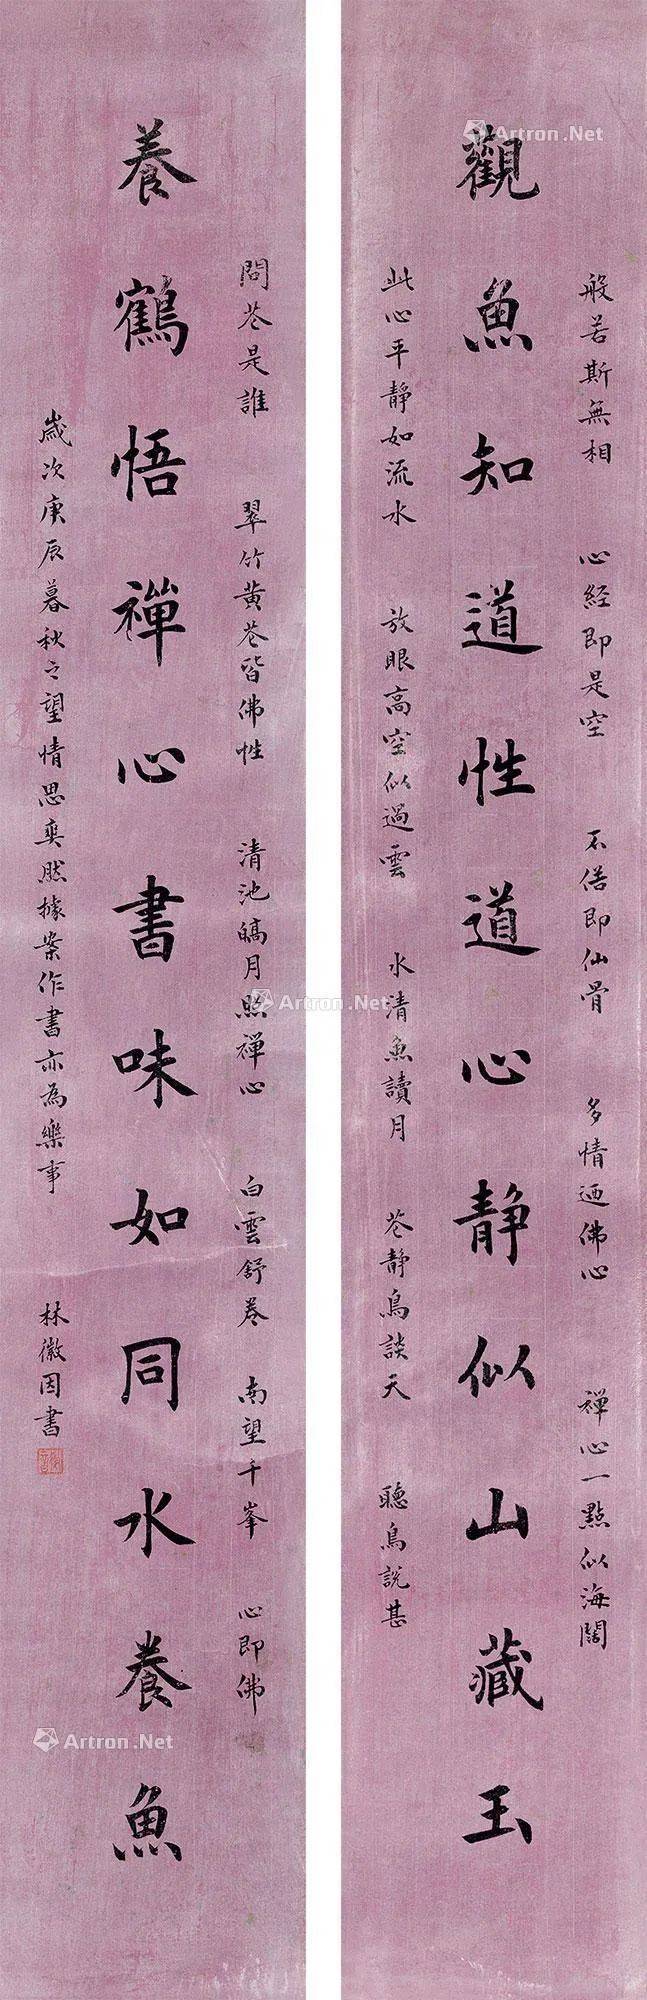 般若斯無相 心経即是空 不俗即仙骨 多情迺佛心 禅心一點似海闊
觀魚知道性道心静似山藏玉
此心平靜如流水 放眼高空似過雲 水清魚讀月 花静鳥談天 聽鳥說甚
問花是誰 翠竹黄花皆佛性 清池皜月照禅心 白雲舒卷 南望千峯 心即佛
養鶴悟禪心書味如同水養魚
歲次庚辰暮秋之望情思奕然據案作書亦為樂事 林徽因書
Artron.Net
Artron.Net
Artron.Net
Artron.Net